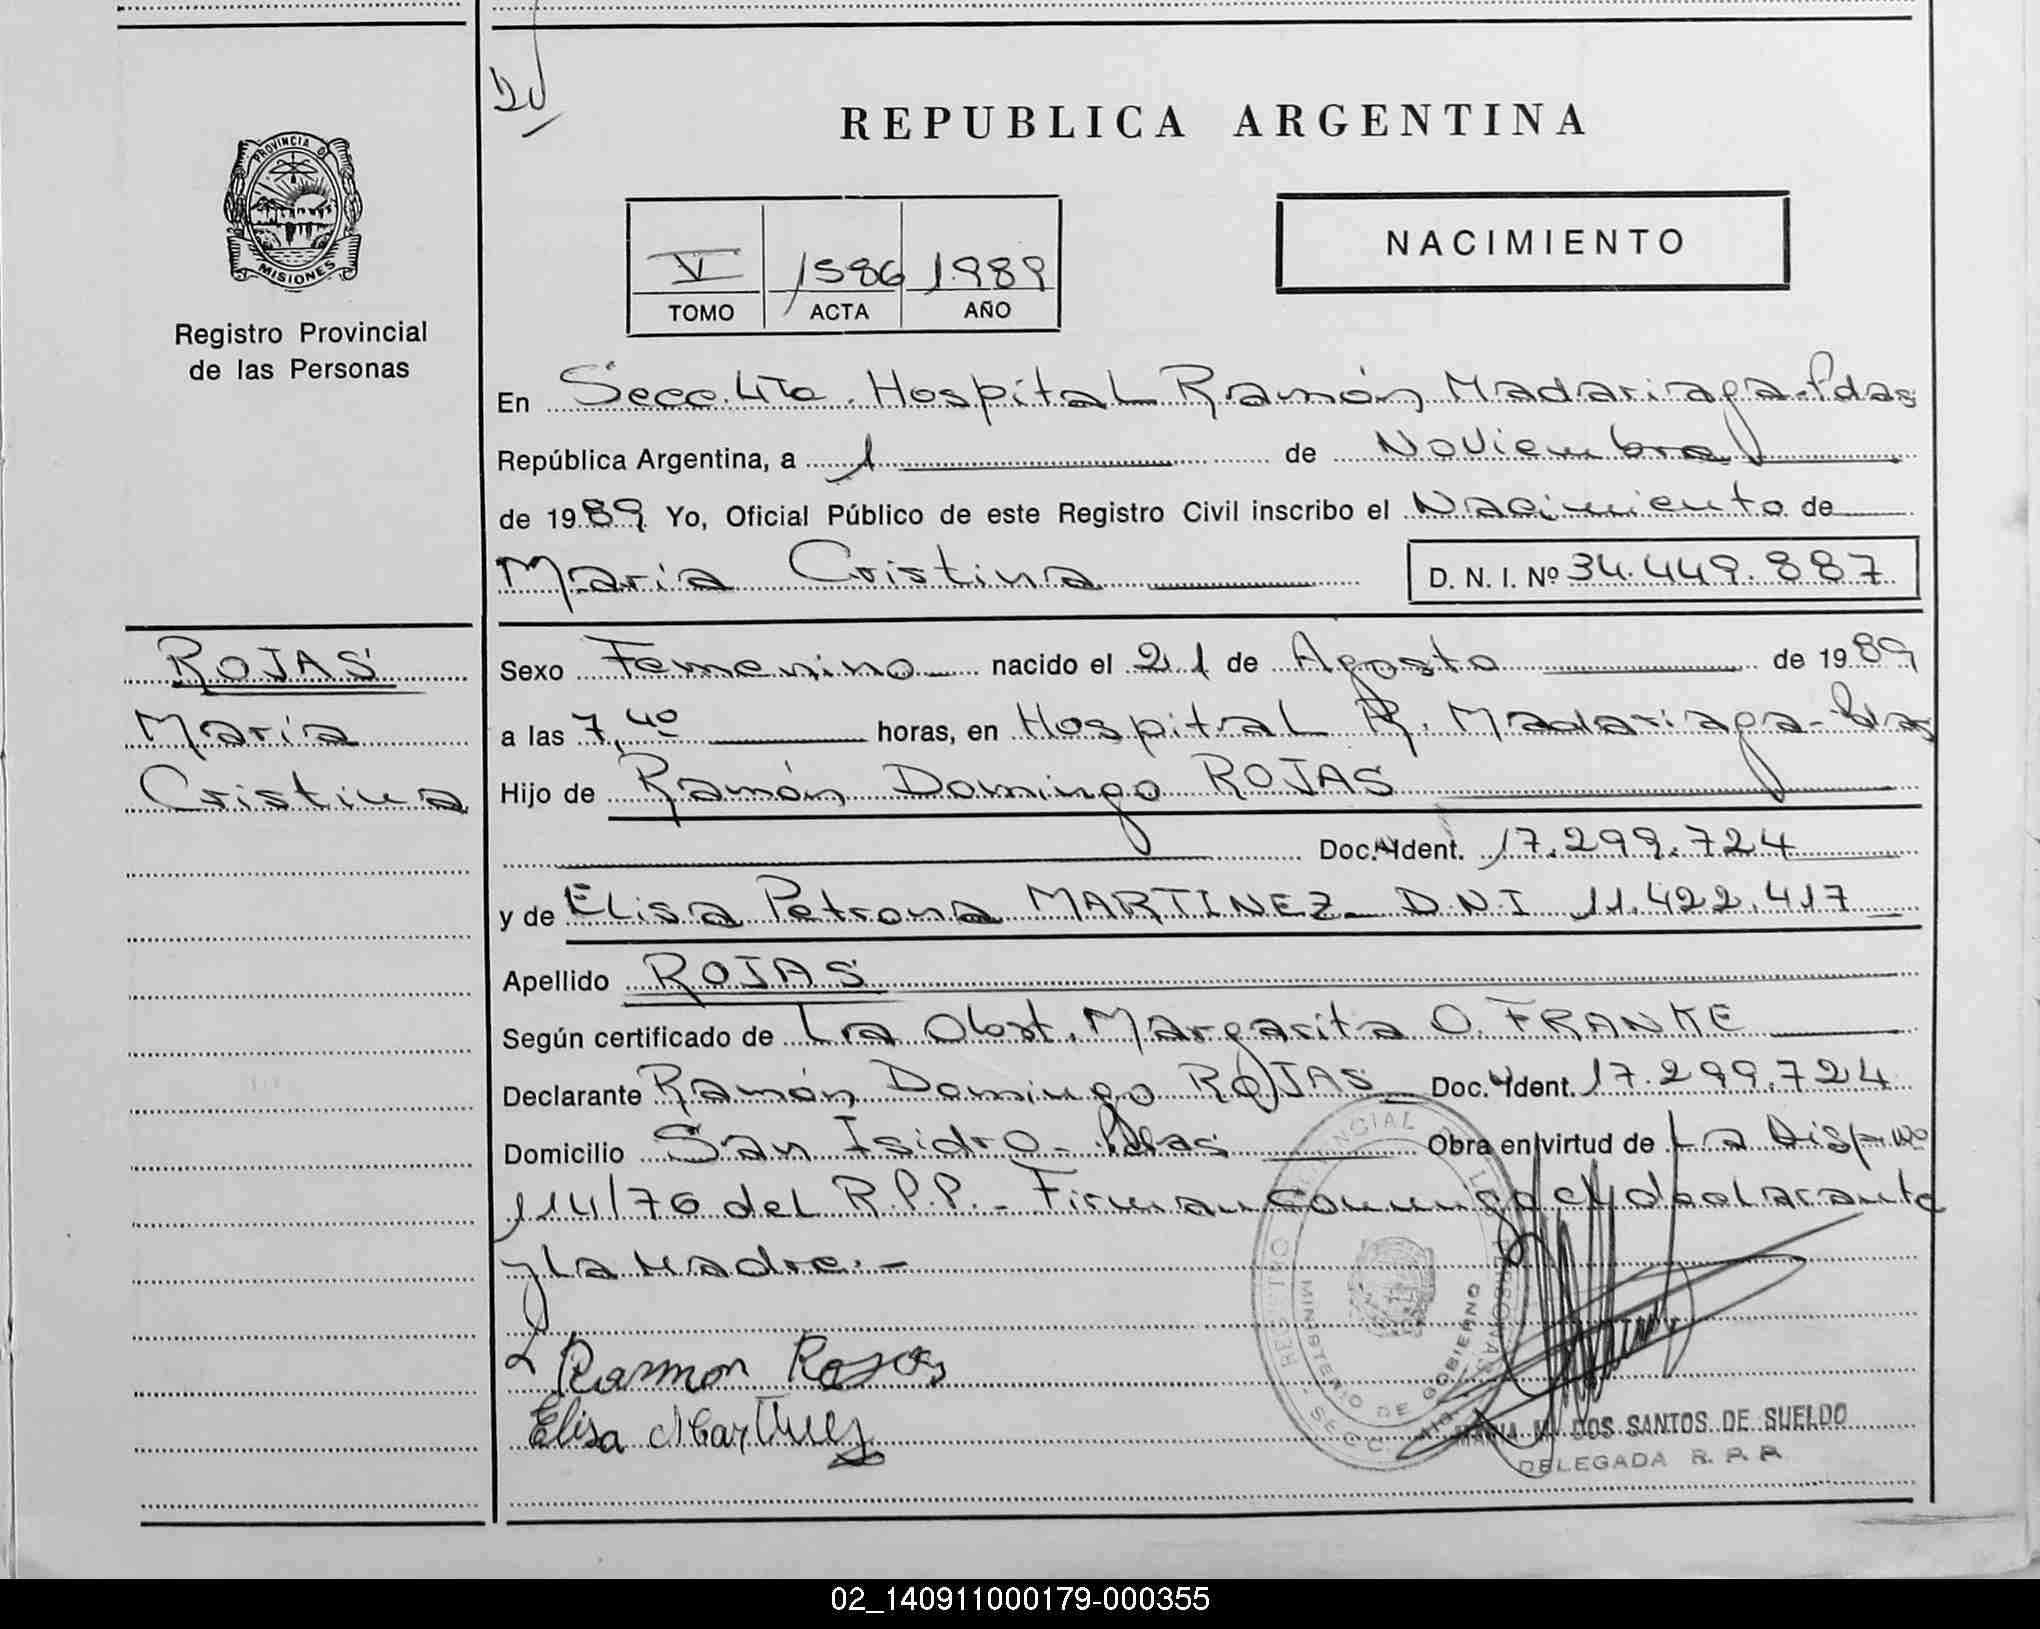 REPUBLICA ARGENTINA
PROVINCIA D
MISIONES
Registro Provincial
de las Personas
V 1586 1989
TOMO ACTA AÑO
NACIMIENTO
En Secc. 4ta. Hospital Ramón Madariaga-Pdas
República Argentina, a 1 de Noviembre
de 1989 Yo, Oficial Público de este Registro Civil inscribo el Nacimiento de
María Cristina D. N. I. Nº 34.449.887
ROJAS
María
Cristina
Sexo Femenino nacido el 21 de Agosto de 1989
a las 7,40 horas, en Hospital R. Madariaga-Pdas
Hijo de Ramón Domingo ROJAS
Doc. Ident. 17.299.724
y de Elisa Petrona MARTINEZ- D.N.I 11.422.417
Apellido ROJAS
Según certificado de La Obst. Margarita O. FRANKE
Declarante Ramón Domingo ROJAS Doc. Ident. 17.299.724
Domicilio San Isidro- Pdas Obra en virtud de La Disp. Nº
114/76 del R.P.P.- Firman conmigo el declarante
y la Madre.-
Ramon Rojas
Elisa Martinez
REGISTRO PROVINCIAL DE LAS PERSONAS
MINISTERIO DE GOBIERNO
SECC. 4ta
MARIA M. DOS SANTOS DE SUELDO
DELEGADA R. P. P.
02_140911000179-000355